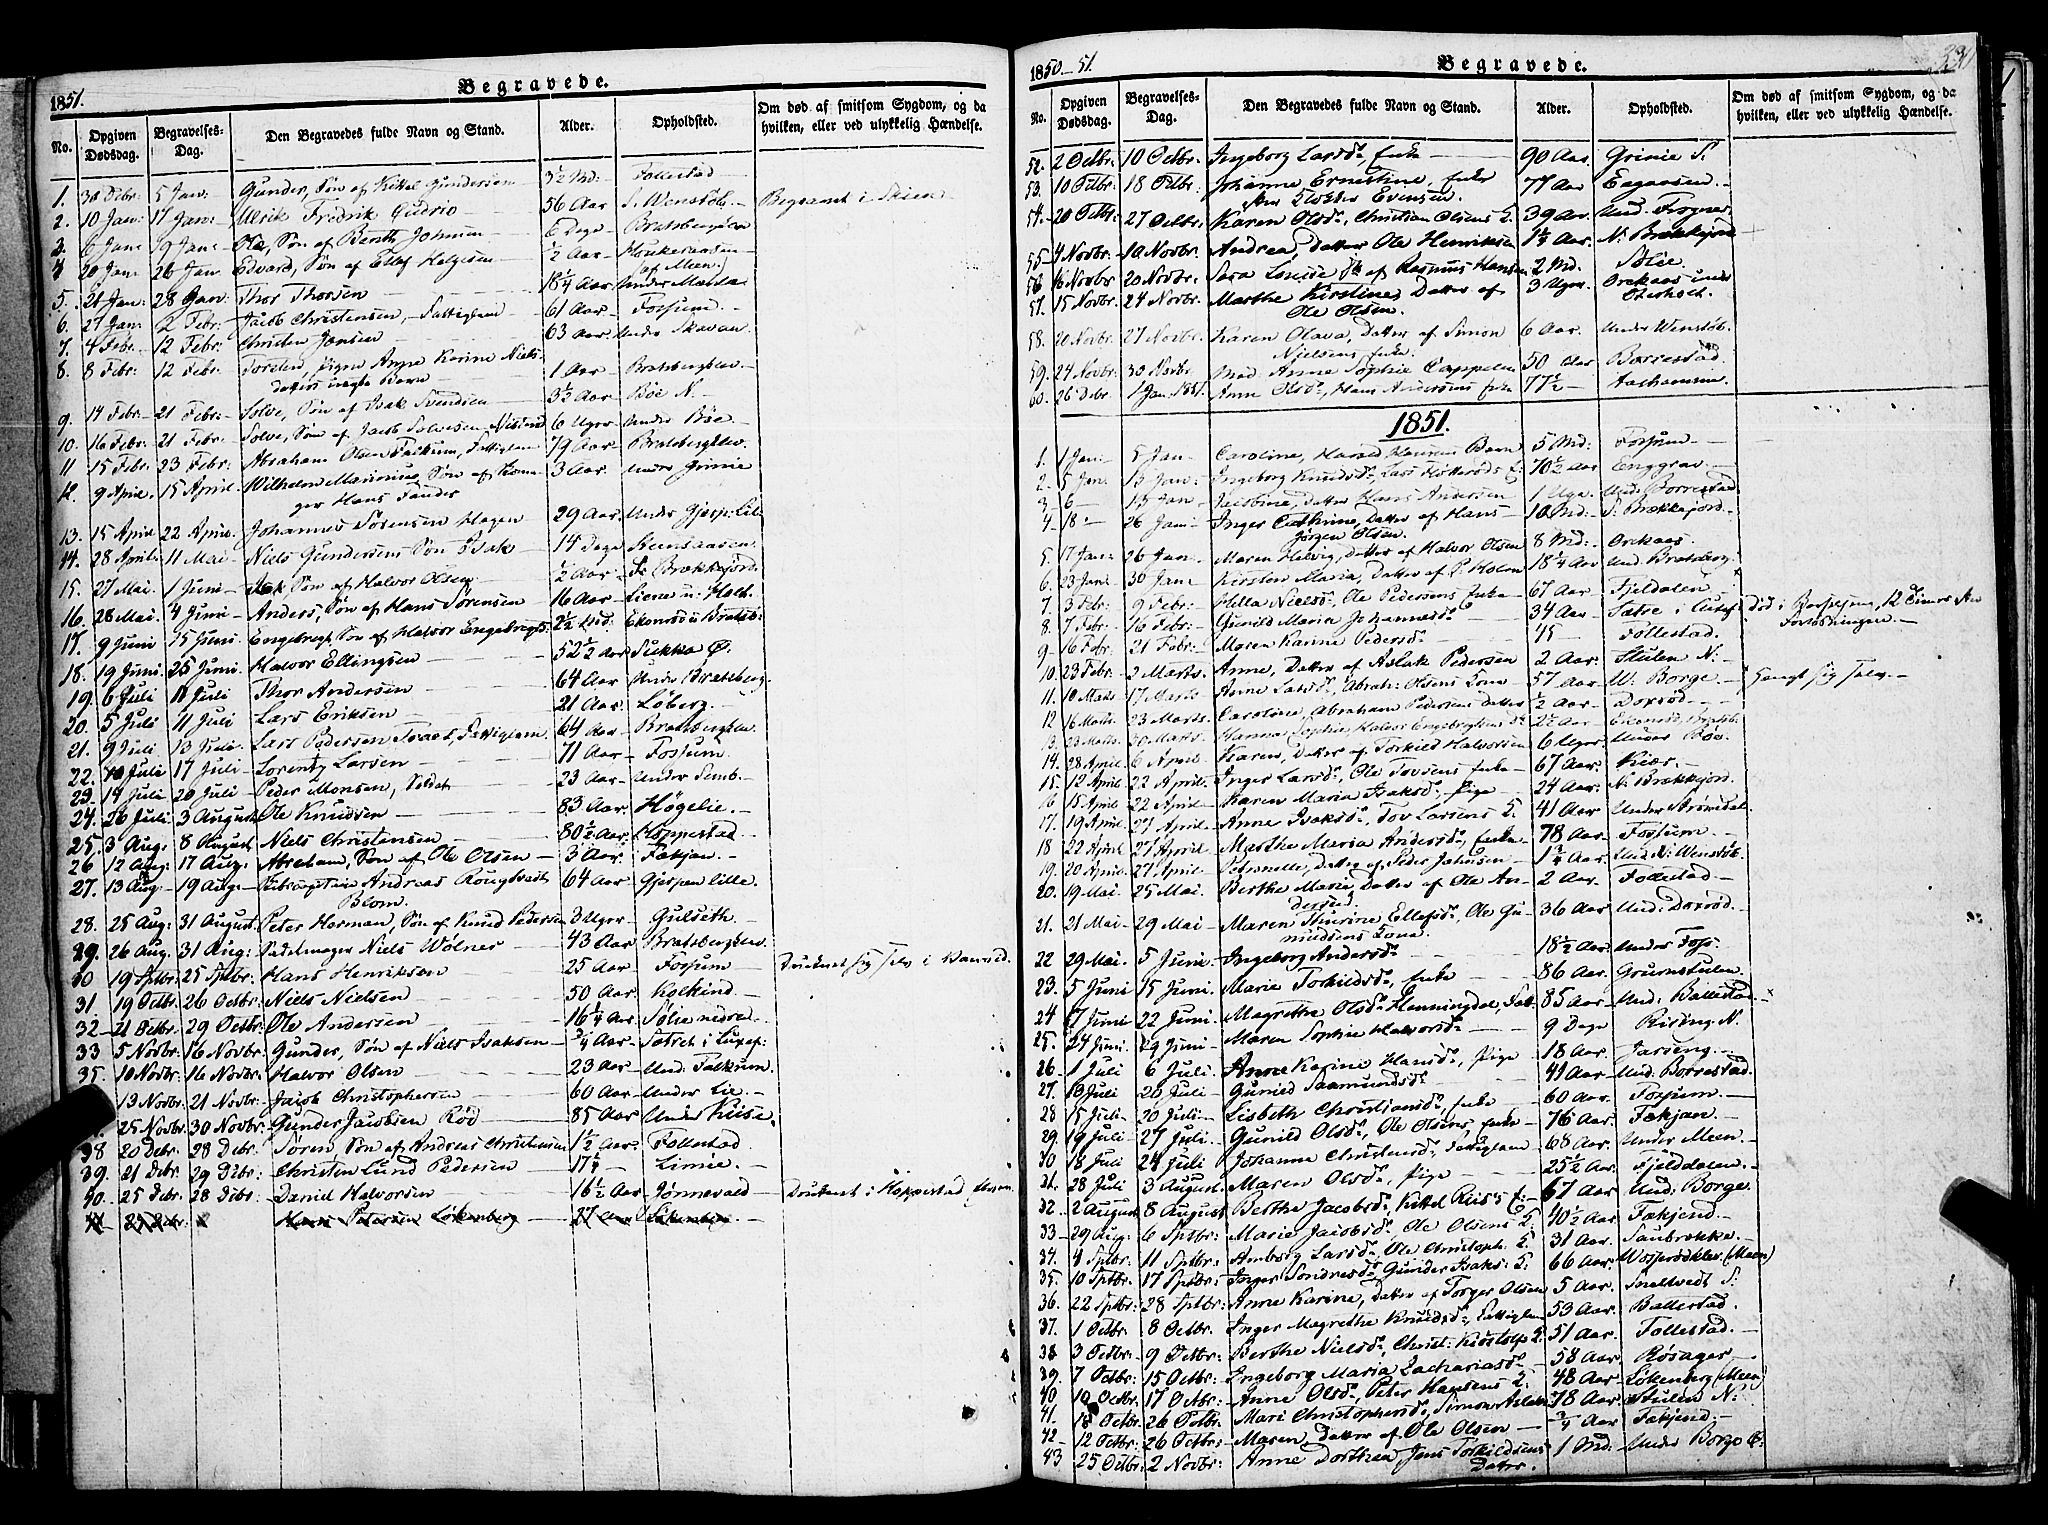 Begravede.
1851.
No. Opgiven Dødsdag. Begravelses-Dag. Den Begravedes fulde Navn og Stand. Alder. Opholdsted. Om død af smitsom Sygdom, og da hvilken, eller ved ulykkelig Hændelse.
1. 30 Debr: 5 Jan: Gunder, Søn af Kittel Gundersen 3½ Md: Follestad
2. 10 Jan: 17 Jan: Ulrik Fredrik 56 Aar S. Wenstøb Begravet i Skien
3. 6 Jan: 19 Jan: Ole, Søn af Benth Johnsen 6 Dage Bratsbergklev
4 20 Jan: 26 Jan. Edvard, Søn af Ellef Helgesen ½ Aar (af Meen)
5. 21 Jan: 28 Jan: Thor Thorsen 18¼ Aar Under
6. 27 Jan: 2 Febr: Jacob Christensen, Fattiglem 61 Aar Fossum
7. 4 Febr. 12 Febr: Christen Jensen 63 Aar Under Skavan
8. 8 Febr: 12 Febr. Torsten, Pigen Anne Karine Niels- 1 Aar Bratsbergklev
datters uægte Barn
9. 14 Febr. 21 Febr. Solve, Søn af Isak Svendsen 3½ Aar Bøe N.
10. 16 Febr: 21 Febr: Solve, Søn af Jacob Solvesen 6 Uger Under Bøe
11 15 Febr: 23 Febr: Abraham Olsen Falkum, Fattiglem 79 Aar Bratsbergklev.
12. 9 April. 15 April. Wilhelm Søn af 3 Aar Under Grinie
Hans
13. 15 April 22 April. Johannes Sørensen Hagen 29 Aar Under Gjerp: Lil:
14. 28 April 11 Mai Niels Gundersens Søn Isak 14 Dage Steensaasen
15. 27 Mai. 1 Juni Isak Søn af Halvor Olsen ½ Aar Brækkejord.
16. 28 Mai. 4 Juni Anders, Søn af Hans Sørensen 16 Aar
17. 9 Juni 15 Juni. Engebregt, Søn af Halvor Engebregts: 2½ Md: Bratsb:
18. 19 Juni 25 Juni. Halvor Ellingsen 52½ Aar
19. 6 Juli 11 Juli Thor Andersen 64 Aar Under Bratsberg.
20. 5 Juli 11 Juli Lars Eriksen 21 Aar Løberg.
21. 9 Juli 13 Juli. Lars Pedersen Traet, Fattiglem 64 Aar Bratsbergklev
22. 10 Juli 17 Juli Lorentz Larsen 71 Aar Fossum
23. 14 Juli 20 Juli Peder Monsen, Soldat 23 Aar Under Semb.
24. 26 Juli. 3 August Ole Knudsen 83 Aar Høgelie.
25. 3 Aug: 8 August Niels Christensen 80½ Aar Hoppestad
26 12 Aug: 17 Aug: Abraham, Søn af Ole Olsen 3 Aar Fækjan.
27. 13 Aug 19 Aug: Andreas Rougtvedt 64 Aar Gjerpen lille.
Blom.
28. 25 Aug: 31 August. Peter Herman, Søn af Knud Pedersen 3 Uger Gulseth
29. 26 Aug. 31 Aug: Sadelmager Niels Wolner 43 Aar Bratsbergklev.
30 19 Sptbr. 25 Sptbr. Hans Henriksen 25 Aar Fossum Druknet sig selv i
31. 19 Octbr. 26 Octbr. Niels Nielsen 50 Aar Kolkind
32 21 Octbr. 29 Octbr. Ole Andersen 16¼ Aar Sølie nedre
33 5 Novbr. 16 Novbr: Gunder, Søn af Niels Isaksen ¾ Aar Sætret i Luxef:
35. 10 Novbr. 16 Novbr: Halvor Olsen 23 Aar Und. Falkum.
13 Novbr. 21 Novbr. Jacob Christophersen 60 Aar Under Lie
25 Novbr. 30 Novbr. Gunder Jacobsen Rød 85 Aar Under Kiise
38 20 Debr. 28 Debr. Søren, Søn af Andreas Christensen 1½ Aar Follestad
39. 21 Debr. 29 Debr: Christen Lund Pedersen 17¼ Limie.
40. 25 Debr. 28 Debr: Daniel Halvorsen 16½ Aar Jønnevald Druknet i Hoppestad Elven
Hans Petersen Løkenberg 27 Aar Løkenberg
Begravede.
1850-51.
No. Opgiven Dødsdag. Begravelses-Dag. Den Begravedes fulde Navn og Stand. Alder. Opholdsted. Om død af smitsom Sygdom, og da hvilken, eller ved ulykkelig Hændelse.
52. 2 Octbr. 10 Octbr. Ingeborg Larsd., Enke 90 Aar Grinie S.
53. 10 Octbr. 18 Octbr. Johanne Ernestine, Enke 77 Aar
efter Klokker Evensen.
54. 20 Octbr. 27 Octbr. Karen Olsd., Christian Olsens K. 39 Aar. Und. Frogner
55. 4 Novbr. 10 Novbr. Andrea, Datter Ole Henriksen 1¼ Aar. N. Brækkejord
56 16 Novbr. 20 Novbr. Sara Louise af Rasmus Hansen 2 Md. Sølie
57. 15 Novbr. 24 Novbr. Marthe Kirstine, Datter af 3 Uger Orekaas under
Ole Olsen.
58. 20 Novbr. 27 Novbr. Karen Olava, Datter af Simon 6 Aar. Under Wenstøb.
Nielsens Enke.
59. 24 Novbr. 30 Novbr. Mad. Anne Sophie Cappelen 50 Aar Borrestad
60. 26 Debr. 1 Jan. 1851. Anne Olsd., Hans Andersens Enke 77½
1851.
1. 1 Jan: 5 Jan Caroline, Harald Hansens Barn 5 Md: Fossum
2. 5 Jan. 13 Jan: Ingeborg Knudsd., Lars K: 70½ Aar Enggrav
3. 6 13 Jan Datter Hans Andersen 1 Uge Und. Borrestad.
4. 18 26 Jan: Inger Cathrine, Datter af Hans 10 Md: S. Brækkejord.
Jørgen Olsen.
5. 17 Jan: 26 Jan. Maren Helvig, Datter af Halvor Olsen 8 Md: Orekaas.
6. 23 Jan: 30 Jan: Kirsten Maria, Datter af P. Holm 18¼ Aar Und. Bratsberg.
7. 3 Febr. 9 Febr: Hella Nielsd., Ole Pedersens Enke 67 Aar Fjeldalen.
8. 7 Febr. 16 Febr: Gunild Maria Johannesd. 34 Aar Sætre i Luxef: Død i
9. 16 Febr. 21 Febr: Maren Karine Pedersd. 45 Follestad.
10. 23 Febr. 2 Marts. Anne, Datter af Aslak Pedersen 2 Aar: Stulen N:
11. 10 Marts 17 Marts. Anne Larsd., Abrah: Olsens Kone 57 Aar: N: Borge. Hengt sig selv.
12 16 Marts. 23 Marts. Caroline, Abraham Pedersens Datter ½ Aar: Doxrød
13. 23 Marts. 30 Marts. Hanna Sophie, Halvor Engebregtsens D. 2½ Aar
14. 28 April 6 April Karen, Datter af Torkild Halvorsen 6 Uger Under Bøe.
15. 12 April 22 April. Inger Larsd., Ole Tovsens Enke 67 Aar. Kiær.
16 15 April 22 April Karen Maria Isaksd., Pige 24 Aar. N: Brækkejord.
17. 19 April. 27 April. Anne Isaksd., Tov Larsens K: 41 Aar Under
18 22 April 27 April Marthe Maria Andersd., Enke 78 Aar: Fossum.
19. 20 April 27 April. Petronelle, Datter af Peder Johnsen 1¾ Aar. Und. N: Wenstøb.
20. 19 Mai. 25 Mai. Berthe Marie, Datter af Ole An- 2 Aar. Follestad
dersen.
21. 21 Mai 29 Mai Maren Thurine Ellefsd., Ole Gu- 36 Aar Und: Doxrød.
mundsens Kone.
22 29 Mai. 5 Juni. Ingeborg Andersd. 18½ Aar. Under Foss:
23. 5 Juni 15 Juni. Marie Torkildsd., Enke 86 Aar Grurnstulen.
24 17 Juni 22 Juni. Magrethe Olsd. Henningdal, Fatt. 85 Aar Und: Ballestad.
25. 24 Juni. 29 Juni Maren Sophie Halvorsd. 9 Dage Rising N.
26 1 Juli 6 Juli. Anne Karine Hansd., Pige 18 Aar Jarseng.
27. 13 Juli 20 Juli Gunild Saamundsd. 41 Aar Und: Borrestad.
28 15 Juli. 20 Juli. Lisbeth Christiansd., Enke 60 Aar. Fossum.
29. 19 Juli 27 Juli. Gunild Olsd., Ole Olsens Enke 76 Aar. Fækjan.
30 18 Juli 24 Juli Johanne Christensd., Fattiglem 68 Aar. Under Meen.
31. 28 Juli 3 August. Maren Olsd., Pige 25½ Aar. Fjelddalen.
32. 2 August 8 August Berthe Jacobsd., Kittel Riis's E: 67 Aar. Und: Borge.
33 29 Aug: 6 Sptbr: Marie Jacobsd. Ole Olsens K: 40½ Aar. Fækjend.
34. 4 Sptbr. 11 Sptbr: Amborg Larsd., Ole Christoph: K: 31 Aar. Saubrække.
35. 10 Sptbr. 17 Sptbr: Inger Sondresd., Gunder Isaks: K: 66 Aar. (Meen)
36. 22 Sptbr: 28 Sptbr: Anne Karine, Datter af Torger Olsen 5 Aar. Sneltvedt S:
37. 1 Octbr. 8 Octbr. Inger Magrethe Knudsd., Fattiglem 53 Aar. Ballestad.
38 3 Octbr. 9 Octbr: Berthe Nielsd., Christ: K: 51 Aar. Follestad.
39. 7 Octbr. 15 Octbr: Ingeborg Maria Zachariasd. 58 Aar. Røsager
40 10 Octbr. 17 Octbr: Anne Olsd., Peter Hansens K: 48 Aar. Løkenberg (Meen)
41. 18 Octbr. 26 Octbr. Mari Christophersd., Simon 78 Aar. Stulen N:
42 12 Octbr. 26 Octbr. Maren, Datter af Ole Olsen ¾ Aar Fækjend.
43 25 Octbr. 2 Novbr: Anne Dorthea, Jens Torkildsens 1 Md: Under Borge Ø:
Datter.